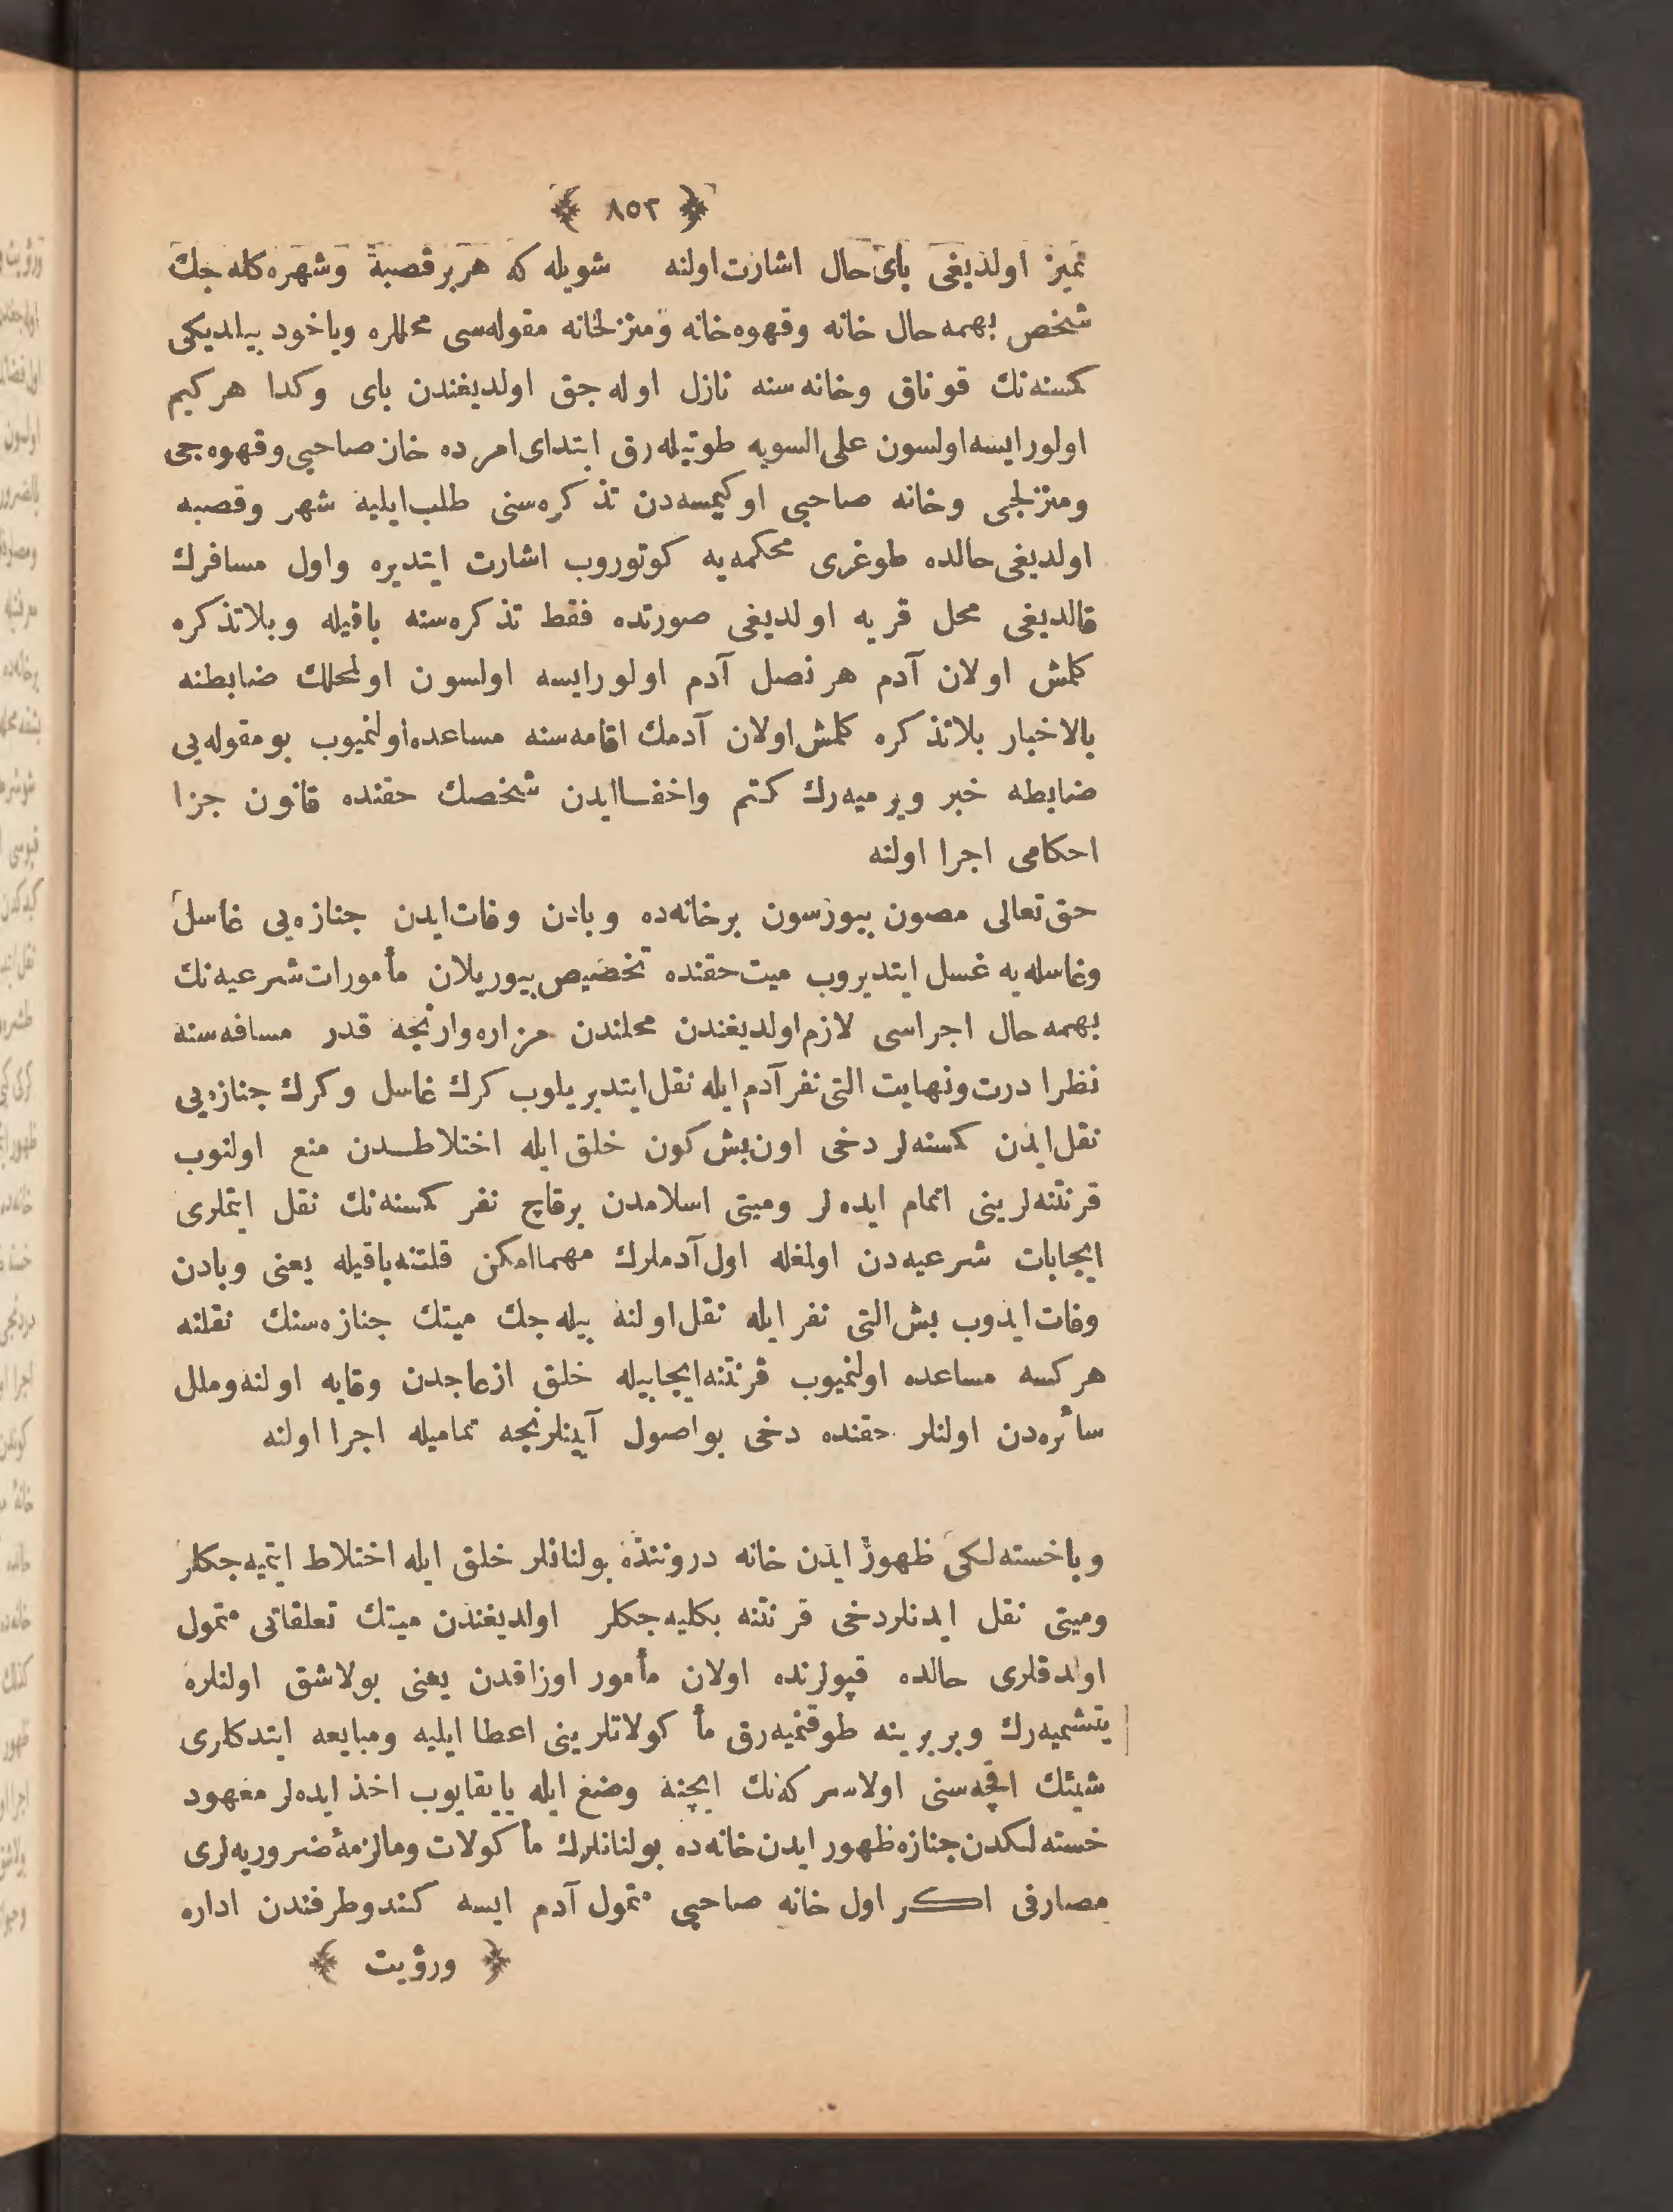 ﴿ ٨٥٢ ﴾
تميز اولديغى باى حال اشارت اولنه شويله كه هر بر قصبه وشهره كله جك
شخص بهمه حال خانه وقهوه خانه ومنزلخانه مقوله سى محللره وياخود بيلديكى
كمسنه نك قوناق وخانه سنه نازل اوله جق اولديغندن باى وكدا هركيم
اولور ايسه اولسون على السويه طوتيله رق ابتداى امرده خان صاحبى وقهوه جى
ومنزلجى وخانه صاحبى او كيمسه دن تذكره سنى طلب ايليه شهر وقصبه
اولديغى حالده طوغرى محكمه يه كوتوروب اشارت ايتديره واول مسافرك
قالديغى محل قريه اولديغى صورتده فقط تذكره سنه باقيله وبلا تذكره
كلمش اولان آدم هر نصل آدم اولور ايسه اولسون اولمحلك ضابطنه
بالاخبار بلا تذكره كلمش اولان آدمك اقامه سنه مساعده اولنميوب بو مقوله يى
ضابطه خبر ويرميه رك كتم واخفا ايدن شخصك حقنده قانون جزا
احكامى اجرا اولنه
حق تعالى مصون بيورسون برخانه ده وبادن وفات ايدن جنازه يى غاسل
وغاسله يه غسل ايتديروب ميت حقنده تخصيص بيوريلان مأمورات شرعيه نك
بهمه حال اجراسى لازم اولديغندن محلندن مزاره وارنجه قدر مسافه سنه
نظرا درت ونهايت التى نفر آدم ايله نقل ايتديريلوب كرك غاسل وكرك جنازه يى
نقل ايدن كمسنه لر دخى اون بش كون خلق ايله اختلاطدن منع اولنوب
قرنتنه لرينى اتمام ايده لر وميتى اسلامدن برقاچ نفر كمسنه نك نقل ايتملرى
ايجابات شرعيه دن اولمغله اول آدملرك مهما امكن قلتنه باقيله يعنى وبادن
وفات ايدوب بش التى نفر ايله نقل اولنه بيله جك ميتك جنازه سنك نقلنه
هركسه مساعده اولنميوب قرنتنه ايجابيله خلق ازعاجدن وقايه اولنه وملل
سائره دن اولنلر حقنده دخى بو اصول آيينلرنجه تماميله اجرا اولنه
وبا خسته لكى ظهور ايدن خانه دروننده بولنانلر خلق ايله اختلاط ايتميه جكلر
وميتى نقل ايدنلر دخى قرنتنه بكليه جكلر اولديغندن ميتك تعلقاتى متمول
اولدقلرى حالده قپولرنده اولان مأمور اوزاقدن يعنى بولاشق اولنلره
يتشميه رك وبر برينه طوقنميه رق مأكولاتلرينى اعطا ايليه ومبايعه ايتدكلرى
شيئك اقچه سنى اولا سركه نك ايچنه وضع ايله يايقايوب اخذ ايده لر معهود
خسته لكدن جنازه ظهور ايدن خانه ده بولنانلرك مأكولات ومالزمهٔ ضروريه لرى
مصارفى اكر اول خانه صاحبى متمول آدم ايسه كندو طرفندن اداره
﴿ ورؤيت ﴾